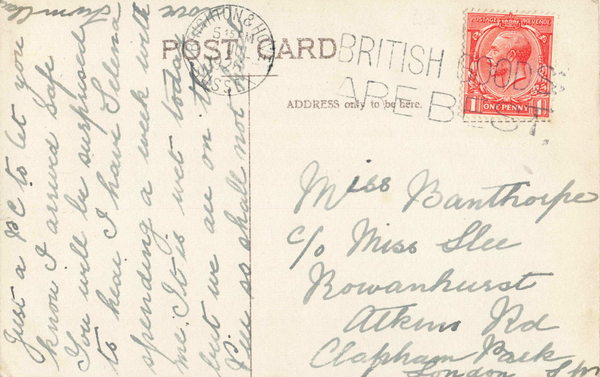 Just a P.C to let you
know I arrived safe
You will be surprised
to hear I have Selend
spending a week with
me. It is wet today
but we are on the
Pier so shall not
love
POST CARD
ADDRESS only to be here.
BRIGHTON & HOVE
SUSSEX
BRITISH GOODS
ARE BEST
POSTAGE REVENUE
1 ONE PENNY 1
Miss Banthorpe
c/o Miss Slee
Rowanhurst
Atkins Rd
Clapham Park
London SW